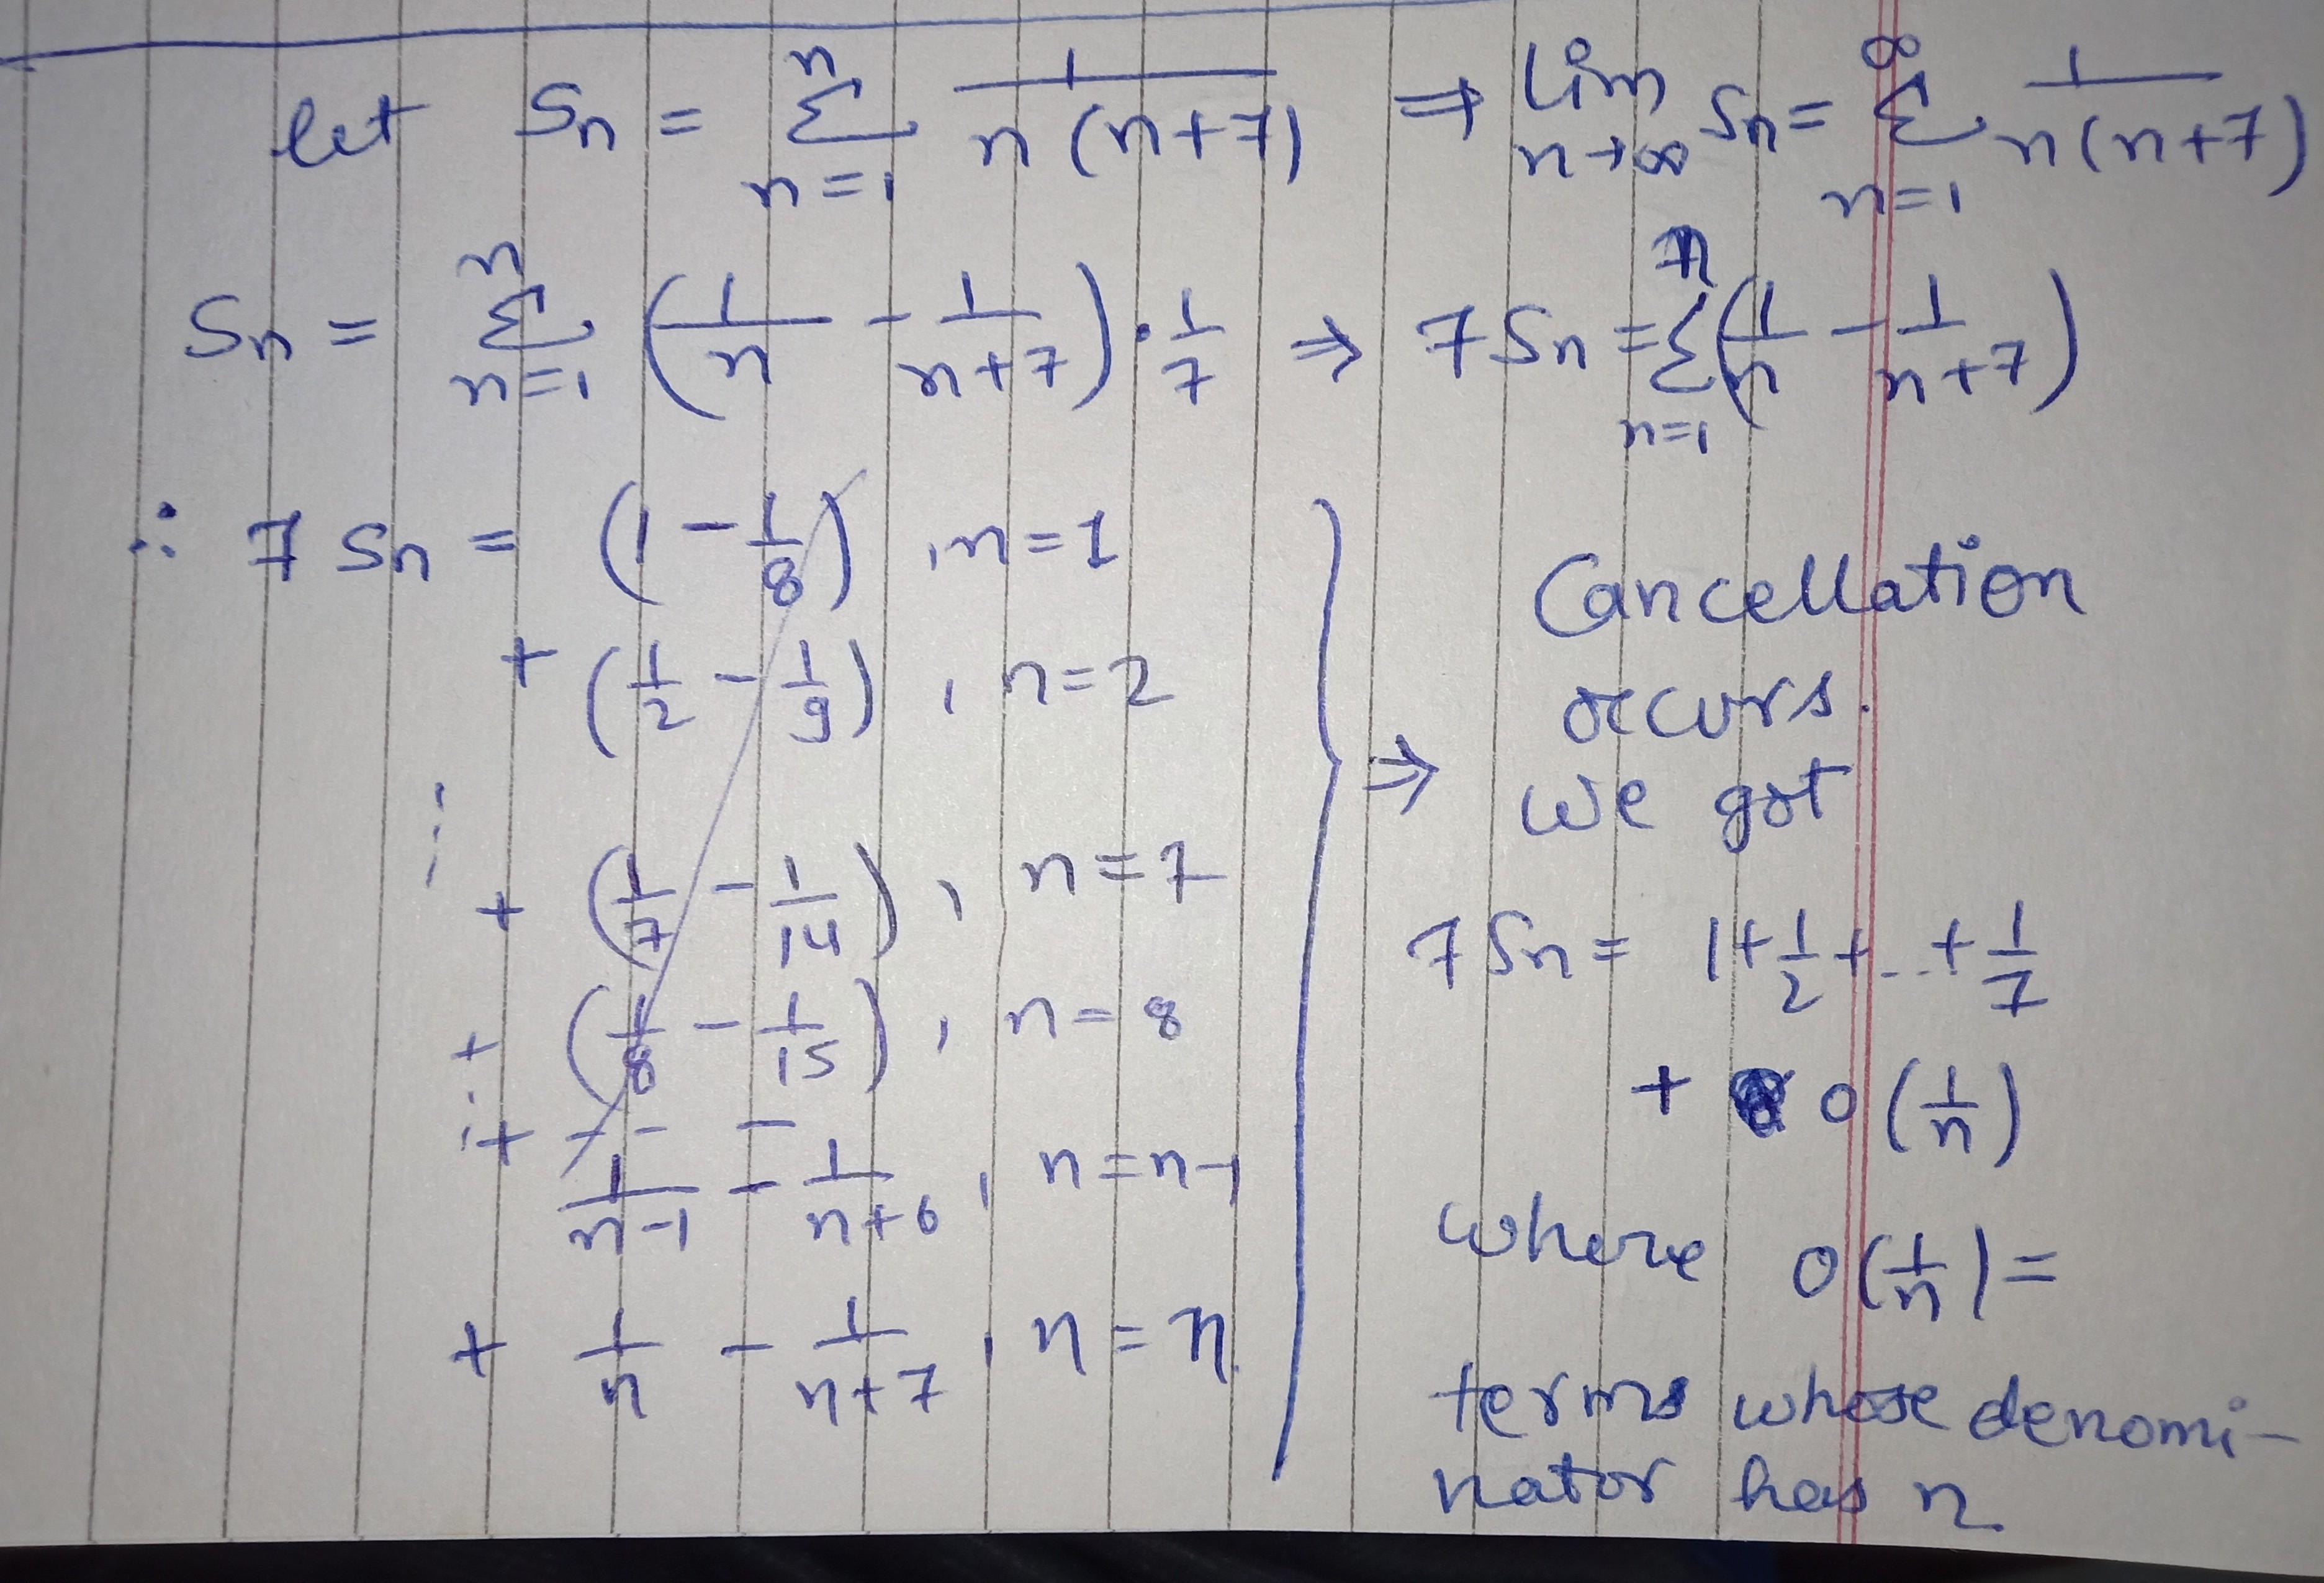 let Sn = n Σ n=1 1/n(n+7) ⇒ lim n→∞ Sn = ∞ Σ n=1 1/n(n+7)
Sn = n Σ n=1 (1/n - 1/n+7) · 1/7 ⇒ 7Sn = n Σ n=1 (1/n - 1/n+7)
∴ 7 Sn = (1 - 1/8), n=1
+ (1/2 - 1/9), n=2
+ (1/7 - 1/14), n=7
+ (1/8 - 1/15), n=8
+ 1/n-1 - 1/n+6, n=n-1
+ 1/n - 1/n+7, n=n
⇒ Cancellation
occurs.
we got
7Sn = 1+1/2+...+1/7
+ o(1/n)
where o(1/n) =
terms whose denomi-
nator has n